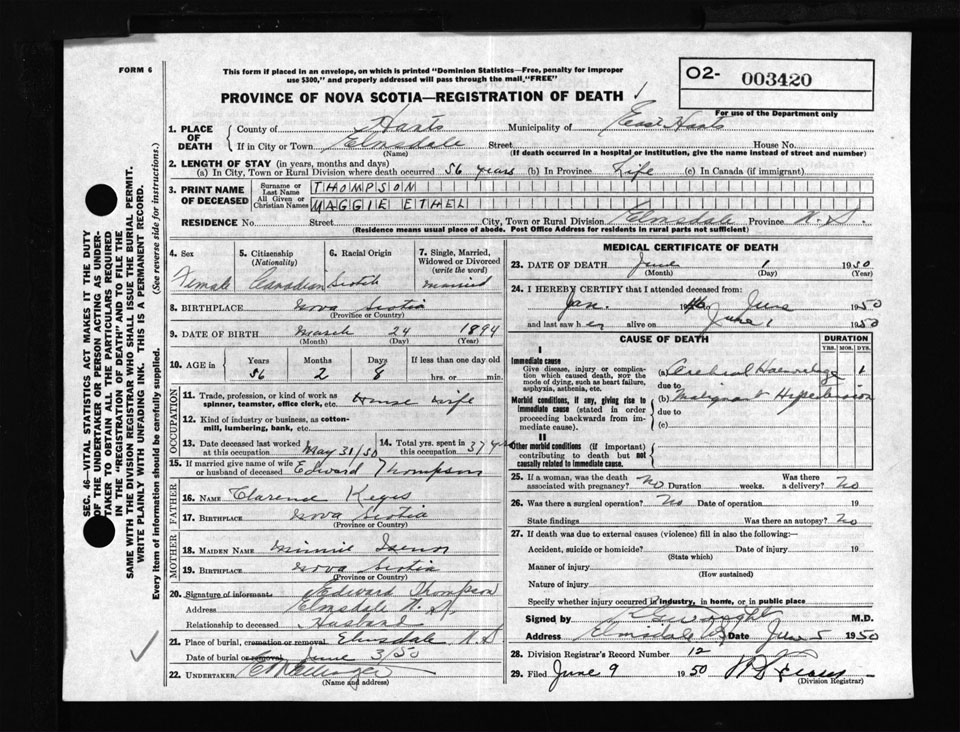 FORM 6
This form if placed in an envelope, on which is printed "Dominion Statistics—Free, penalty for improper
use $300," and properly addressed will pass through the mail, "FREE"
O2- 003420
For use of the Department only
PROVINCE OF NOVA SCOTIA—REGISTRATION OF DEATH
SEC. 46—VITAL STATISTICS ACT MAKES IT THE DUTY
OF THE UNDERTAKER OR PERSON ACTING AS UNDER-
TAKER TO OBTAIN ALL THE PARTICULARS REQUIRED
IN THE "REGISTRATION OF DEATH" AND TO FILE THE
SAME WITH THE DIVISION REGISTRAR WHO SHALL ISSUE THE BURIAL PERMIT.
WRITE PLAINLY WITH UNFADING INK. THIS IS A PERMANENT RECORD.
Every item of information should be carefully supplied. (See reverse side for instructions.)
1. PLACE OF DEATH County of Hants Municipality of East Hants
If in City or Town Elmsdale Street House No.
(Name) (If death occurred in a hospital or institution, give the name instead of street and number)
2. LENGTH OF STAY (in years, months and days)
(a) In City, Town or Rural Division where death occurred 56 years (b) In Province Life (c) In Canada (if immigrant)
3. PRINT NAME OF DECEASED Surname or Last Name THOMPSON
All Given or Christian Names MAGGIE ETHEL
RESIDENCE No. Street City, Town or Rural Division Elmsdale Province N.S.
(Residence means usual place of abode. Post Office Address for residents in rural parts not sufficient)
4. Sex 5. Citizenship (Nationality) 6. Racial Origin 7. Single, Married, Widowed or Divorced (write the word)
Female Canadian Scotch married
8. BIRTHPLACE Nova Scotia
(Province or Country)
9. DATE OF BIRTH March 24 1894
(Month) (Day) (Year)
10. AGE in Years Months Days If less than one day old
56 2 8 hrs. or min.
OCCUPATION
11. Trade, profession, or kind of work as spinner, teamster, office clerk, etc. House wife
12. Kind of industry or business, as cotton-mill, lumbering, bank, etc.
13. Date deceased last worked at this occupation May 31/50 14. Total yrs. spent in this occupation 37 yrs
15. If married give name of wife or husband of deceased Edward Thompson
FATHER
16. NAME Clarence Keys
17. BIRTHPLACE Nova Scotia
(Province or Country)
MOTHER
18. MAIDEN NAME Minnie Isenor
19. BIRTHPLACE Nova Scotia
(Province or Country)
20. Signature of informant Edward Thompson
Address Elmsdale N.S.
Relationship to deceased Husband
21. Place of burial, cremation or removal Elmsdale N.S
Date of burial or removal June 3/50
22. UNDERTAKER
(Name and address)
MEDICAL CERTIFICATE OF DEATH
23. DATE OF DEATH June 1 1950
(Month) (Day) (Year)
24. I HEREBY CERTIFY that I attended deceased from:
Jan. 1946 to June 1950
and last saw her alive on June 1 1950
CAUSE OF DEATH DURATION
YRS. MOS. DYS.
I
Immediate cause
Give disease, injury or complication which caused death, NOT the mode of dying, such as heart failure, asphyxia, asthenia, etc.
(a) Cerebral Haemorrhage 1
due to
Morbid conditions, if any, giving rise to immediate cause (stated in order proceeding backwards from immediate cause).
(b) Malignant Hypertension
due to
(c)
II
Other morbid conditions (if important) contributing to death but not causally related to immediate cause.
25. If a woman, was the death associated with pregnancy? No Duration weeks. Was there a delivery? No
26. Was there a surgical operation? No Date of operation 19
State findings Was there an autopsy? No
27. If death was due to external causes (violence) fill in also the following:—
Accident, suicide or homicide? Date of injury 19
(State which)
Manner of injury
(How sustained)
Nature of injury
Specify whether injury occurred in industry, in home, or in public place
Signed by M.D.
Address Elmsdale NS Date June 5 1950
28. Division Registrar's Record Number 12
29. Filed June 9 1950
(Division Registrar)